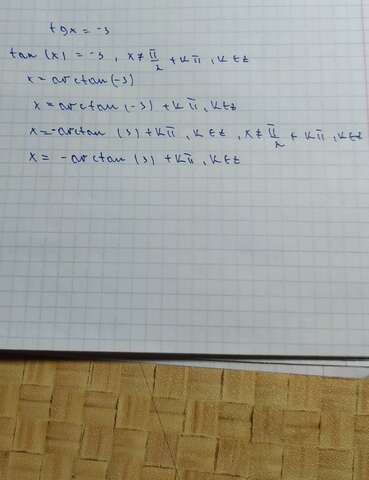 tgx = -3
tan (x) = -3 , x ≠ π/2 + kπ , k ∈ Z
x = arctan (-3)
x = arctan (-3) + kπ , k ∈ Z
x = -arctan (3) + kπ , k ∈ Z , x ≠ π/2 + kπ , k ∈ Z
x = -arctan (3) + kπ , k ∈ Z